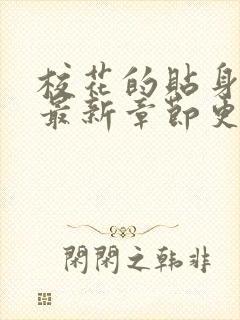 校花的貼身
最新章節更
閑閑之韩非